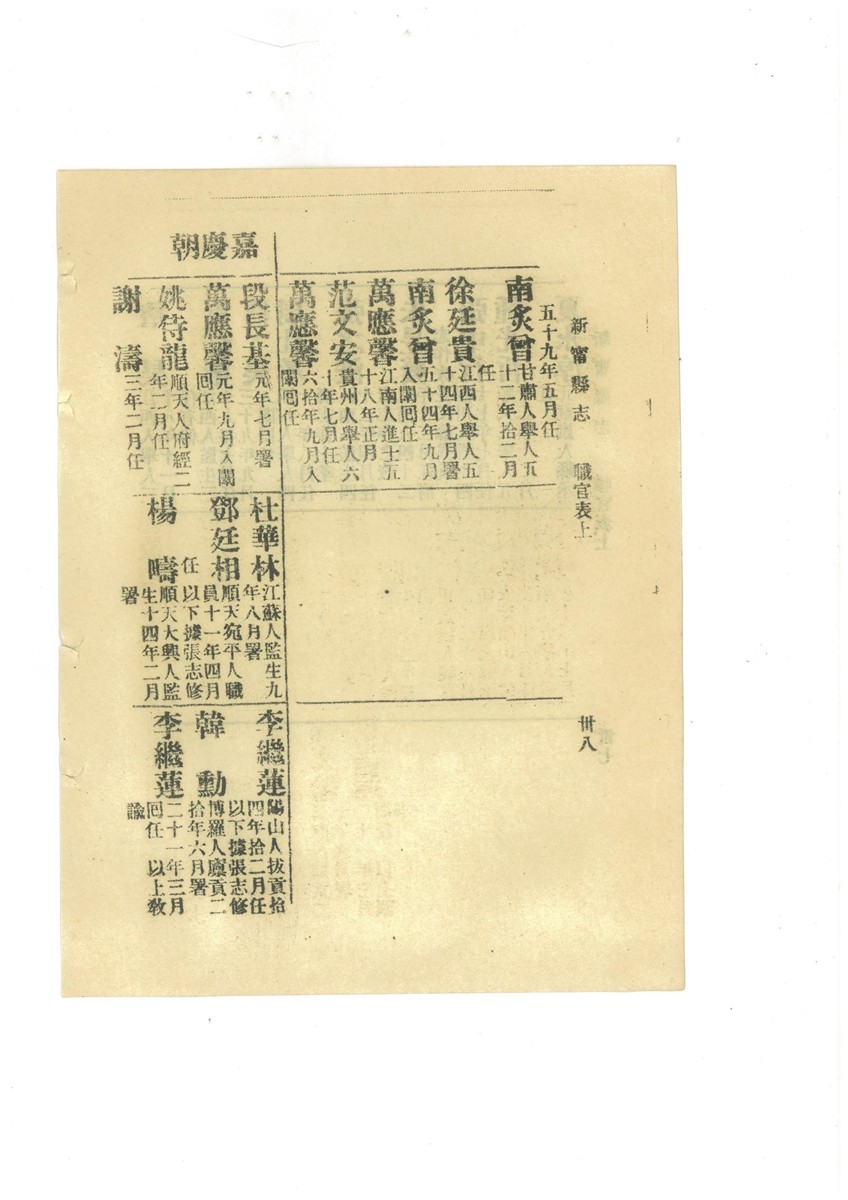 新甯縣志　職官表上　卅八
五十九年五月任
南炙曾甘肅人舉人五
十二年拾二月
任
徐廷貴江西人舉人五
十四年七月署
南炙曾五十四年九月
入闈回任
萬應馨江南人進士五
十八年正月
范文安貴州人舉人六
十年七月任
萬應馨六拾年九月入
闈回任
嘉慶朝
段長基元年七月署
萬應馨元年九月入闈
回任
姚侍龍順天人府經二
年二月任
謝　濤三年二月任
杜華林江蘇人監生九
年八月署
鄧廷相順天宛平人職
員十一年四月
任　以下據張志修
楊　疇順天大興人監
生十四年二月
署
李繼蓮陽山人拔貢拾
四年拾二月任
以下據張志修
韓　勳博羅人廩貢二
拾年六月署
李繼蓮二十一年三月
回任　以上敎
諭